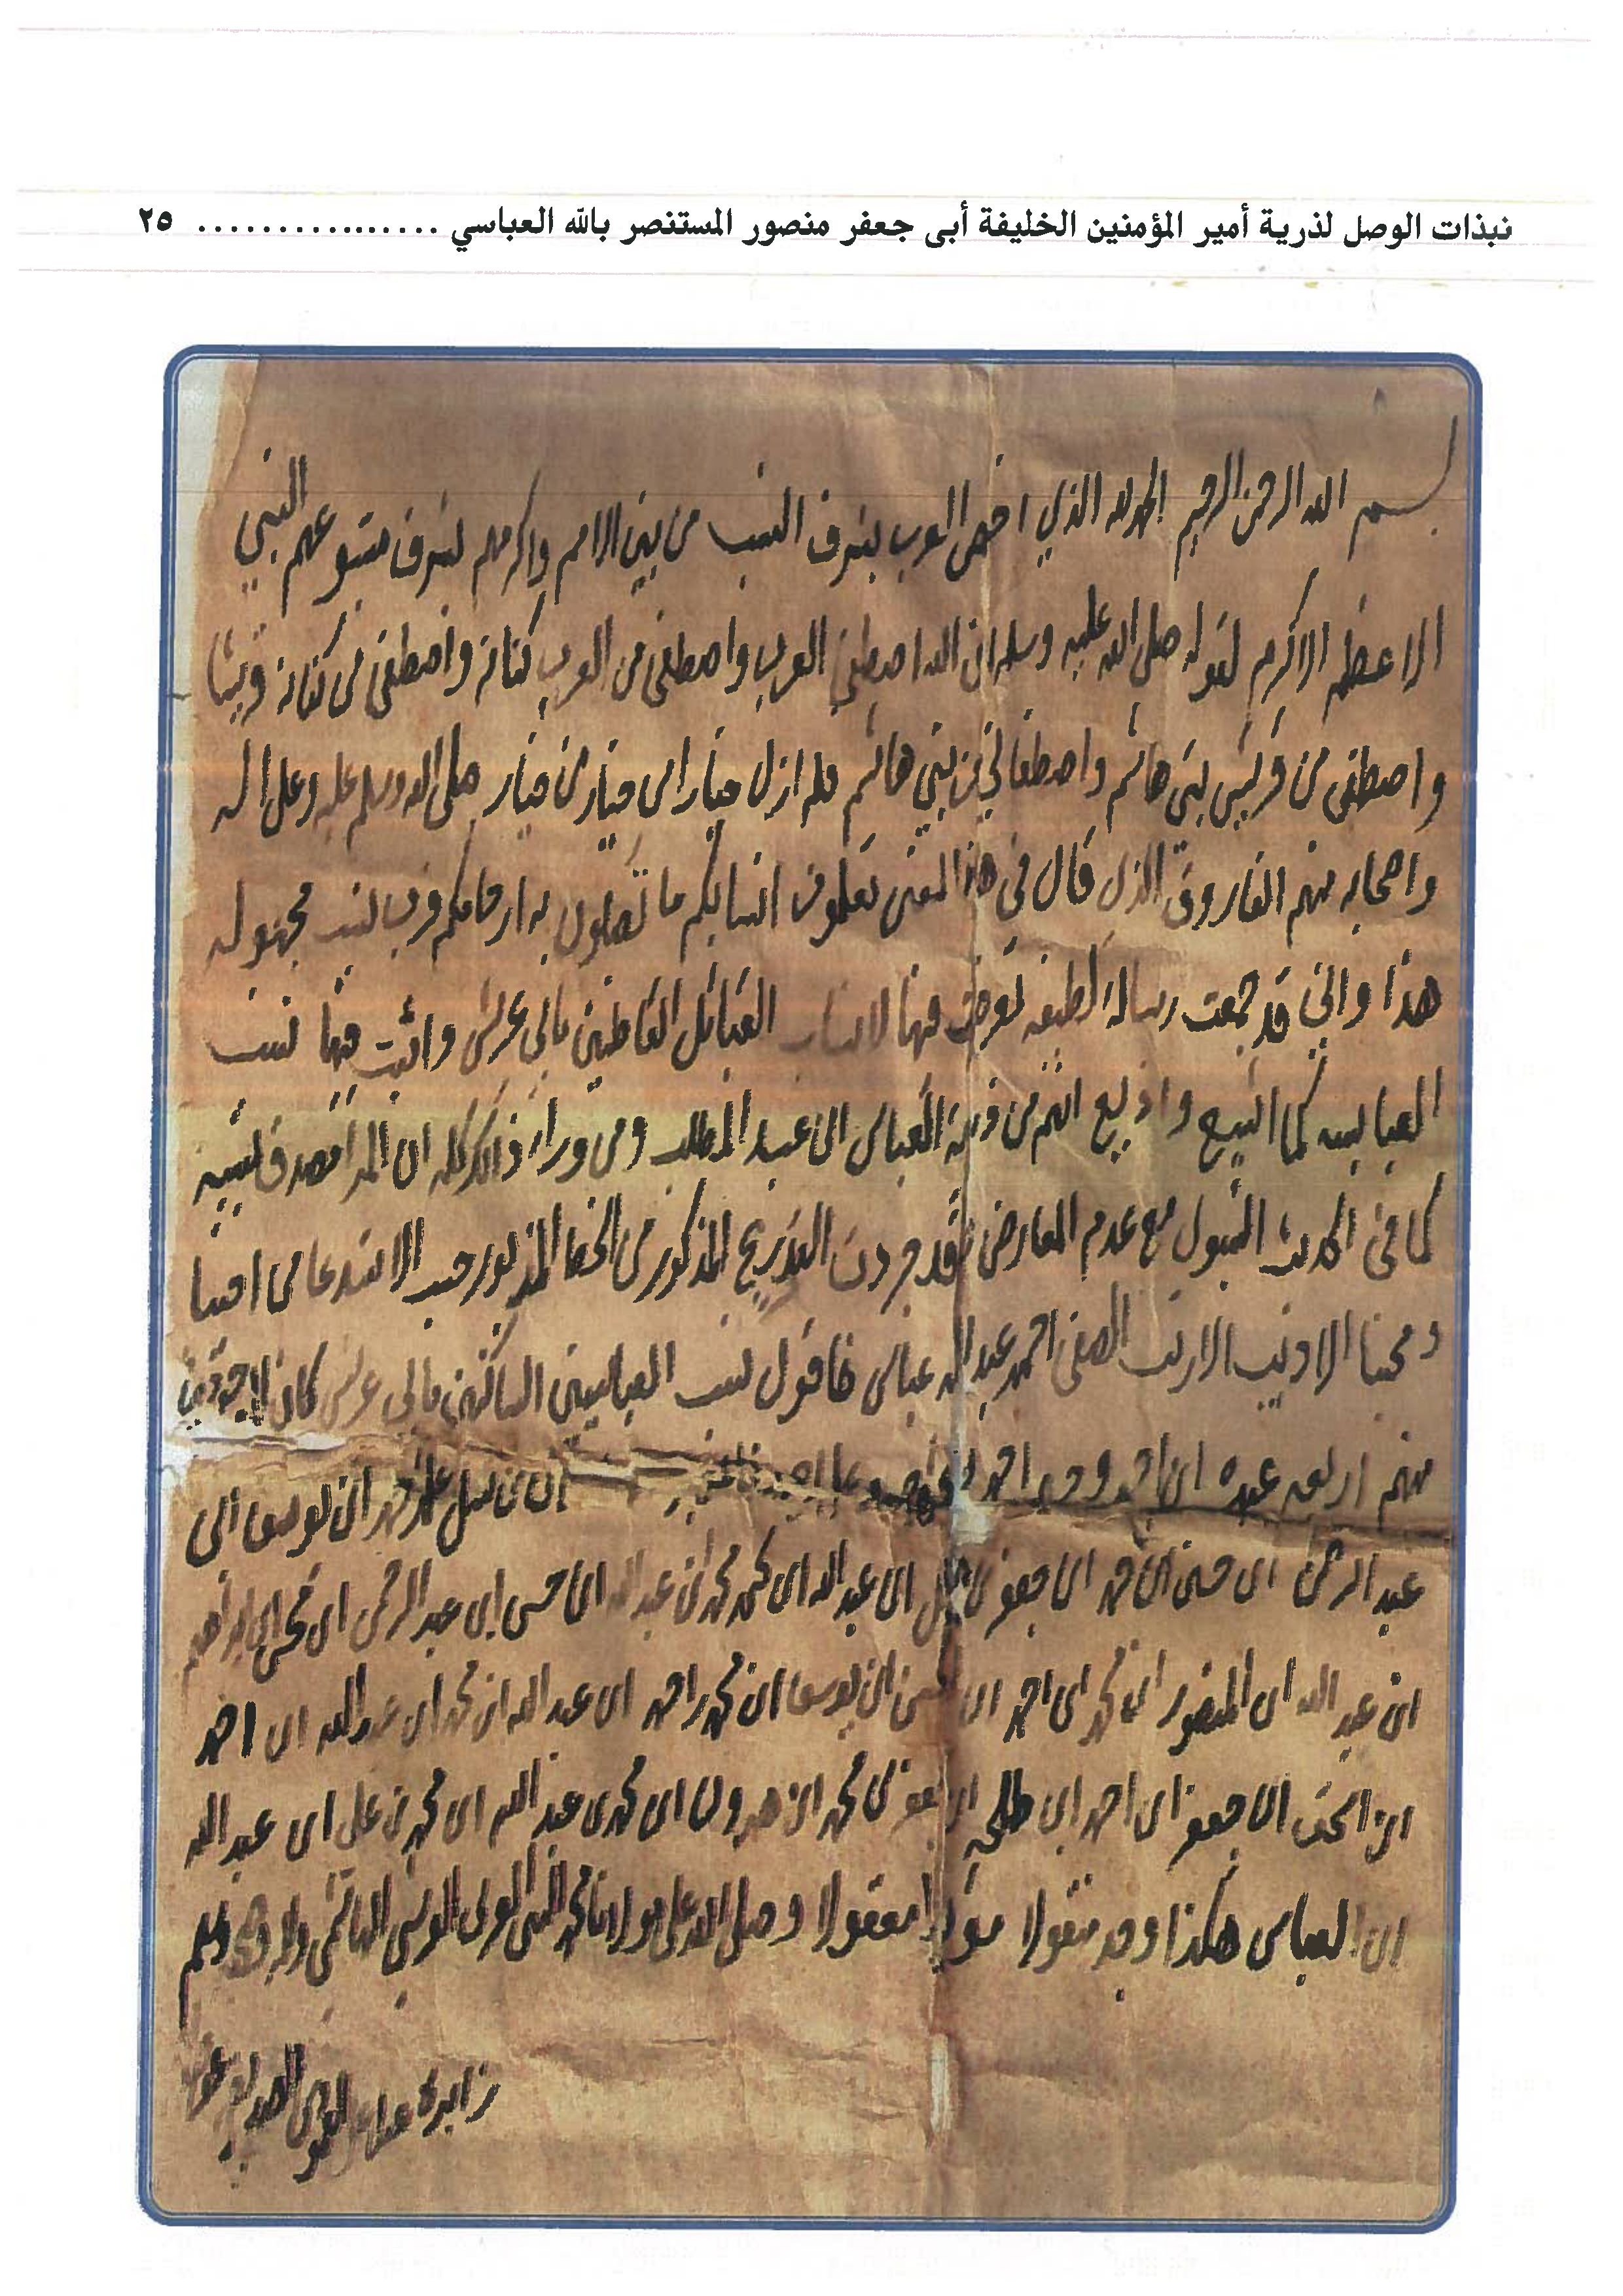 نبذات الوصل لذرية أمير المؤمنين الخليفة أبى جعفر منصور المستنصر بالله العباسي ................ ٢٥
بسم الله الرحمن الرحيم الحمد لله الذي اختص العرب بشرف النسب من بين الامم واكرمهم بشرف متبوعهم النبي
الاعظم الاكرم لقوله صلى الله عليه وسلم ان الله اصطفى العرب واصطفى من العرب كنانة واصطفى من كنانة قريشا
واصطفى من قريش بني هاشم واصطفاني من بني هاشم فلم ازل خيار من خيار من خيار صلى الله وسلم عليه وعلى اله
واصحابه منهم الفاروق الذي قال في هذا المعنى تعلموا انسابكم ما تصلون به ارحامكم فرب نسب مجهوله
هذا واني قد جمعت رسالة لطيفه تعرضت فيها لانساب القبائل القاطنين بابي عريش واثبت فيها نسب
العباسيه كما اشيع واذيع انهم من ذرية العباس ابن عبد المطلب ومن وراء ذلك كله ان المرا مصدق لنسبه
كما في الحديث المقبول مع عدم المعارض فقد جردت التدريج المذكور من الخط المذبور حسب الاستدعا من اخينا
ومحبنا الاديب الاريب الصفي احمد عبدالله عباس فاقول نسب العباسيين الساكنين بابي عريش كان الموجودين
منهم اربعه عبده ابن احمد و احمد ابن من نسل علي محمد ابن يوسف ابن
عبد الرحمن ابن حسن ابن محمد ابن جعفر ابن عبدالله ابن محمد ابن عبد الله ابن حسن ابن عبد الرحمن ابن ابراهيم
ابن عبد الله ابن المنصور ابن محمد ابن احمد ابن حسن ابن يوسف ابن محمد احمد ابن عبد الله ابن محمد ابن عبدالله ابن احمد
ابن اسحق ابن جعفر ابن احمد ابن طلحه ابن جعفر ابن محمد ابن هرون ابن محمد ابن عبد الله ابن محمد بن علي ابن عبد الله
ابن العباس هكذا وجد منقولا معقولا وصلى الله على مولانا محمد النبي العربي القرشي الهاشمي واله وصحبه وسلم